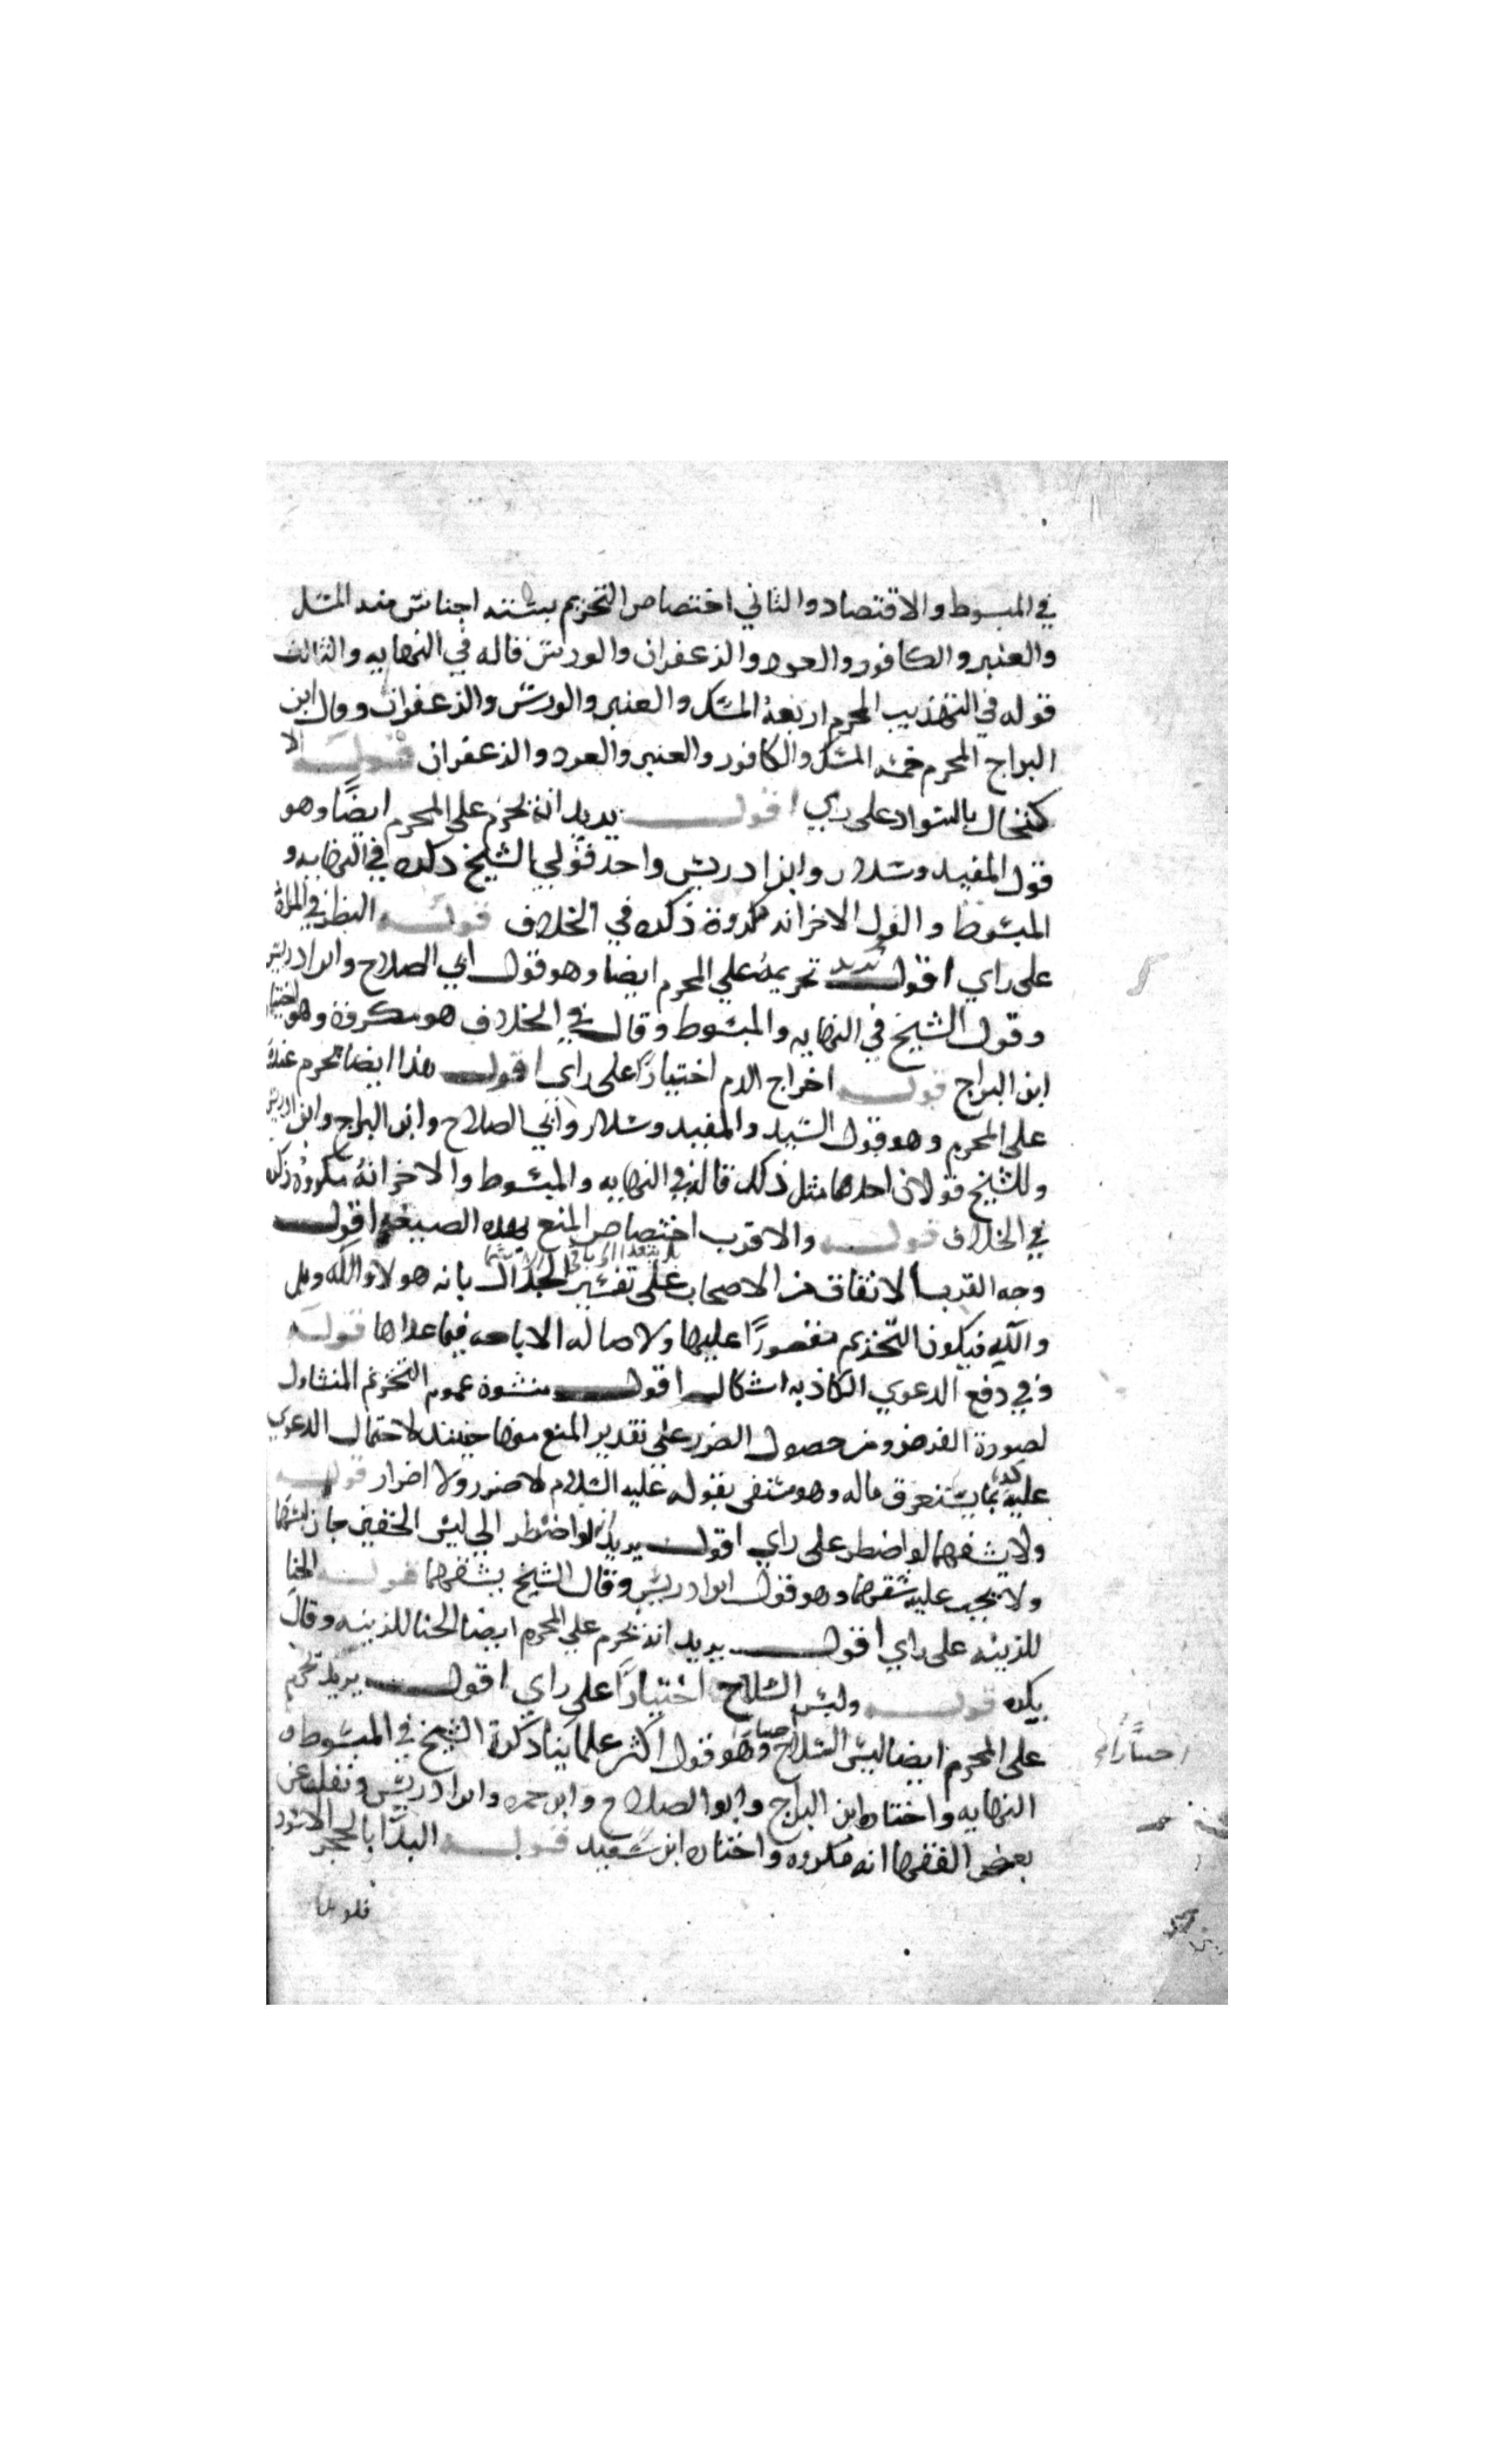 في المبسوط والاقتصاد والثاني اختصاص التحريم بستة اجناس منه المسك
والعنبر والكافور والعود والزعفران والورس قاله في النهايه والثالث
قوله في التهذيب المحرم اربعة المسك والعنبر والورس والزعفران وقال ابن
البراج المحرم خمسه المسك والكافور والعنبر والعود والزعفران قوله الا
كتحال بالسواد على راي اقول يريد انه يحرم على المحرم ايضًا وهو
قول المفيد وسلار وابن ادريس واحد قولي الشيخ ذكره في النهايه و
المبسوط والقول الاخر انه مكروه ذكره في الخلاف قوله النظر في المراة
على راي اقول يريد تحريمه على المحرم ايضا وهو قول ابي الصلاح وابن ادريس
وقول الشيخ في النهايه والمبسوط وقال في الخلاف هو مكروه وهو اختيار
ابن البراج قوله اخراج الدم اختيارًا على راي اقول هذا ايضا محرم عنده
على المحرم وهو قول السيد والمفيد وسلار وابي الصلاح وابن البراج وابن ادريس
وللشيخ قولان احدهما مثل ذلك قاله في النهايه والمبسوط والاخر انه مكروه ذكره
في الخلاف قوله والاقرب اختصاص المنع بهذه الصيغه اقول
وجه القرب الاتفاق من الاصحاب على تفسير الجدال بانه هو لا والله وبلى
والله فيكون التحريم مقصورًا عليها ولاصاله الاباحه فيما عداها قوله
وفي دفع الدعوي الكاذبه اشكال اقول منشوه عموم التحريم المتناول
لصورة الفرض ومن حصول الضرر على تقدير المنع منها حينئذ لاحتمال الدعوي
عليه بما يستغرق ماله وهو منتفى بقوله عليه السلام لا ضرر ولا اضرار قوله
ولا يشقهما لو اضطر على راي اقول يريد انه لو اضطر الي لبس الخفين جاز لبسهما
ولا يجب عليه شقهما وهو قول ابن ادريس وقال الشيخ يشقهما قوله الحنا
للزينه على راي اقول يريد انه يحرم على المحرم ايضا الحنا للزينه وقال
يكره قوله ولبس السلاح اختيارًا على راي اقول يريد تحريم
على المحرم ايضا لبس السلاح وهو قول اكثر علماينا ذكره الشيخ في المبسوط و
النهايه واختاره ابن البراج وابو الصلاح وابن حمزه وابن ادريس ونقل عن
بعض الفقها انه مكروه واختاره ابن سعيد قوله البدأ بالحجر الاسود
فلو